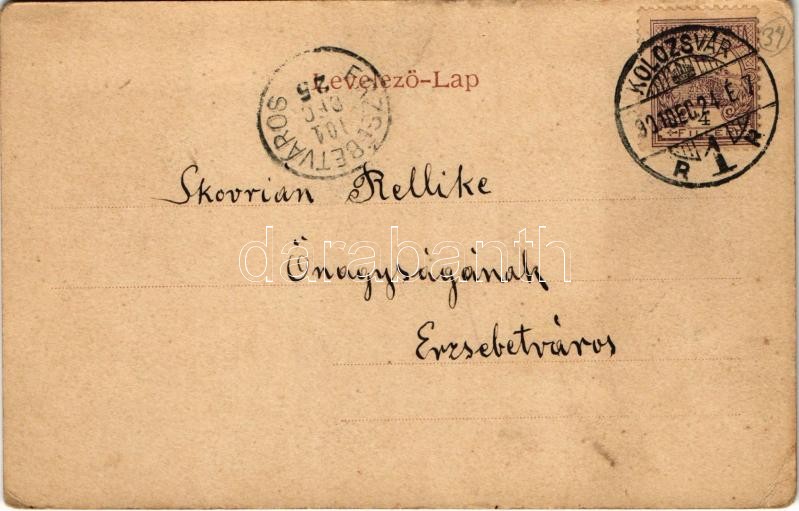 Levelező-Lap
KOLOZSVÁR
901 DEC 24 E 7
R 1 R
4
FILLÉR
ERZSÉBETVÁROS
101
DEC
25
34
Skovrian Rellike
Őnagyságának
Erzsebetváros
darabanth